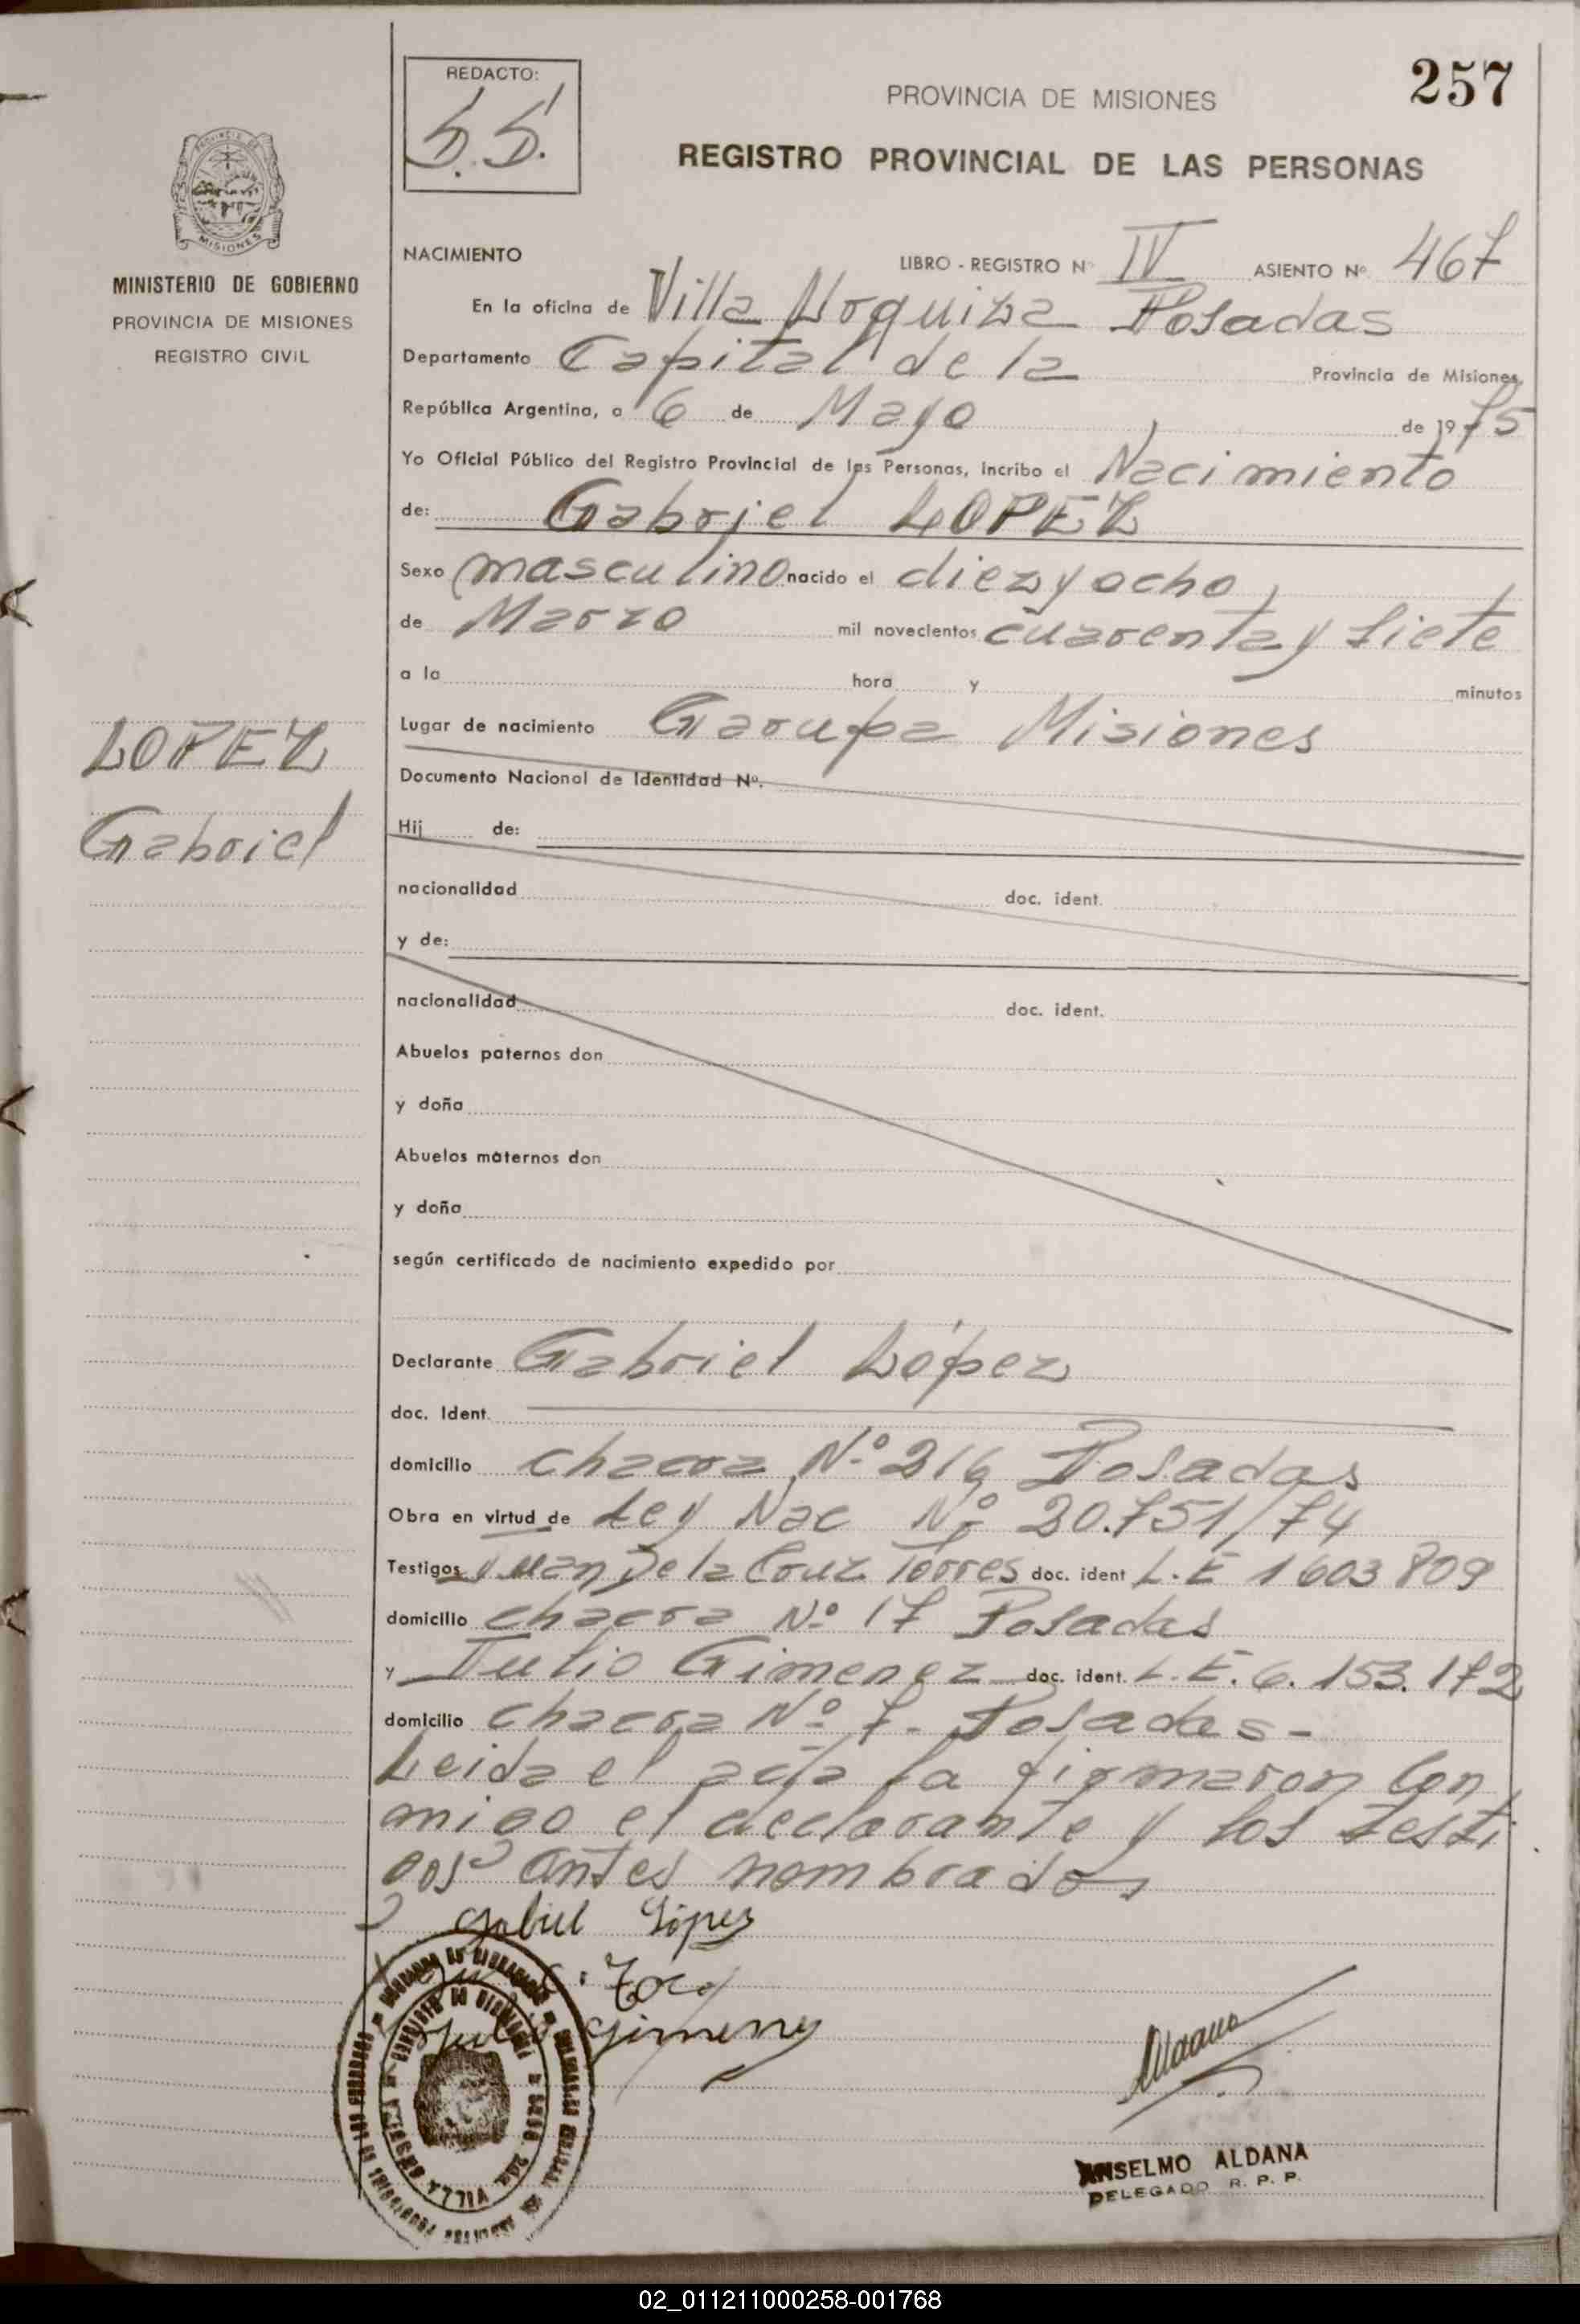 257
REDACTO:
S.S.
PROVINCIA DE MISIONES
REGISTRO PROVINCIAL DE LAS PERSONAS
MISIONES
MINISTERIO DE GOBIERNO
PROVINCIA DE MISIONES
REGISTRO CIVIL
NACIMIENTO LIBRO - REGISTRO Nº IV ASIENTO Nº 467
En la oficina de Villa Urquiza Posadas
Departamento Capital de la Provincia de Misiones,
República Argentina, a 6 de Mayo de 1975
Yo Oficial Público del Registro Provincial de las Personas, incribo el Nacimiento
de: Gabriel LOPEZ
Sexo masculino nacido el diez y ocho
de Marzo mil novecientos cuarenta y siete
a la hora y minutos
Lugar de nacimiento Garupa Misiones
LOPEZ
Gabriel
Documento Nacional de Identidad Nº.
Hij de:
nacionalidad doc. ident.
y de:
nacionalidad doc. ident.
Abuelos paternos don
y doña
Abuelos maternos don
y doña
según certificado de nacimiento expedido por
Declarante Gabriel López
doc. Ident.
domicilio chacra Nº 216 Posadas
Obra en virtud de Ley Nac Nº 20.751/74
Testigos Juan De la Cruz Torres doc. ident L.E 1603809
domicilio chacra Nº 17 Posadas
y Julio Gimenez doc. ident. L.E. 6.153.172
domicilio chacra Nº 7. Posadas-
Leida el acta la firmaron con
migo el declarante y los testi
gos antes nombrados
Gabiel López
Julio Gimenez
VILLA URQUIZA
ANSELMO ALDANA
DELEGADO R. P. P.
02_011211000258-001768